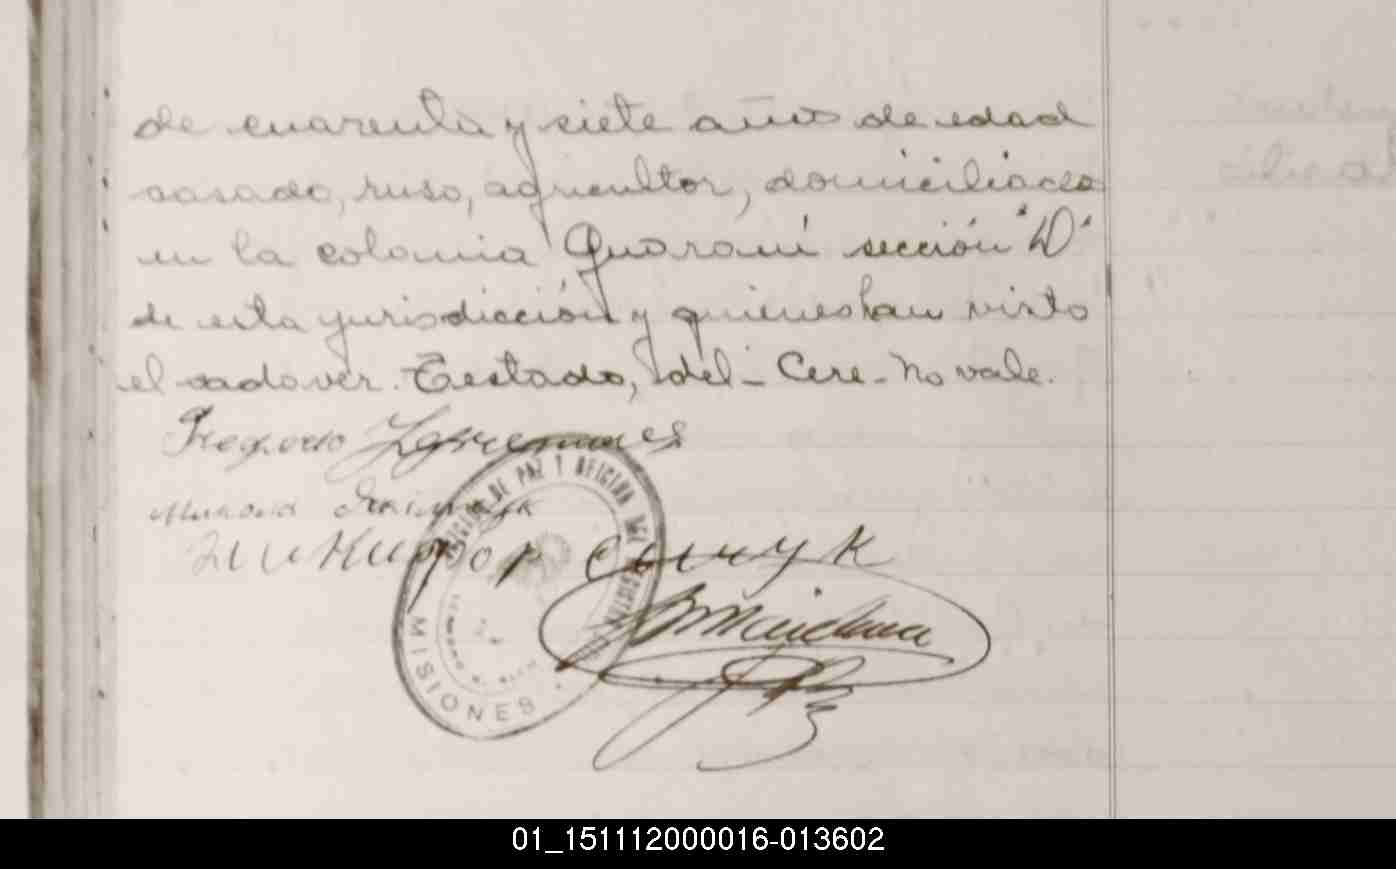 de cuarenta y siete años de edad
casado, ruso, agricultor, domiciliado
en la colonia Guaraní sección "D"
de esta jurisdicción y quienes han visto
el cadaver. Testado, del - Cere - no vale.
Gregorio
DE PAZ Y OFICINA DEL REGISTRO
MISIONES
01_151112000016-013602